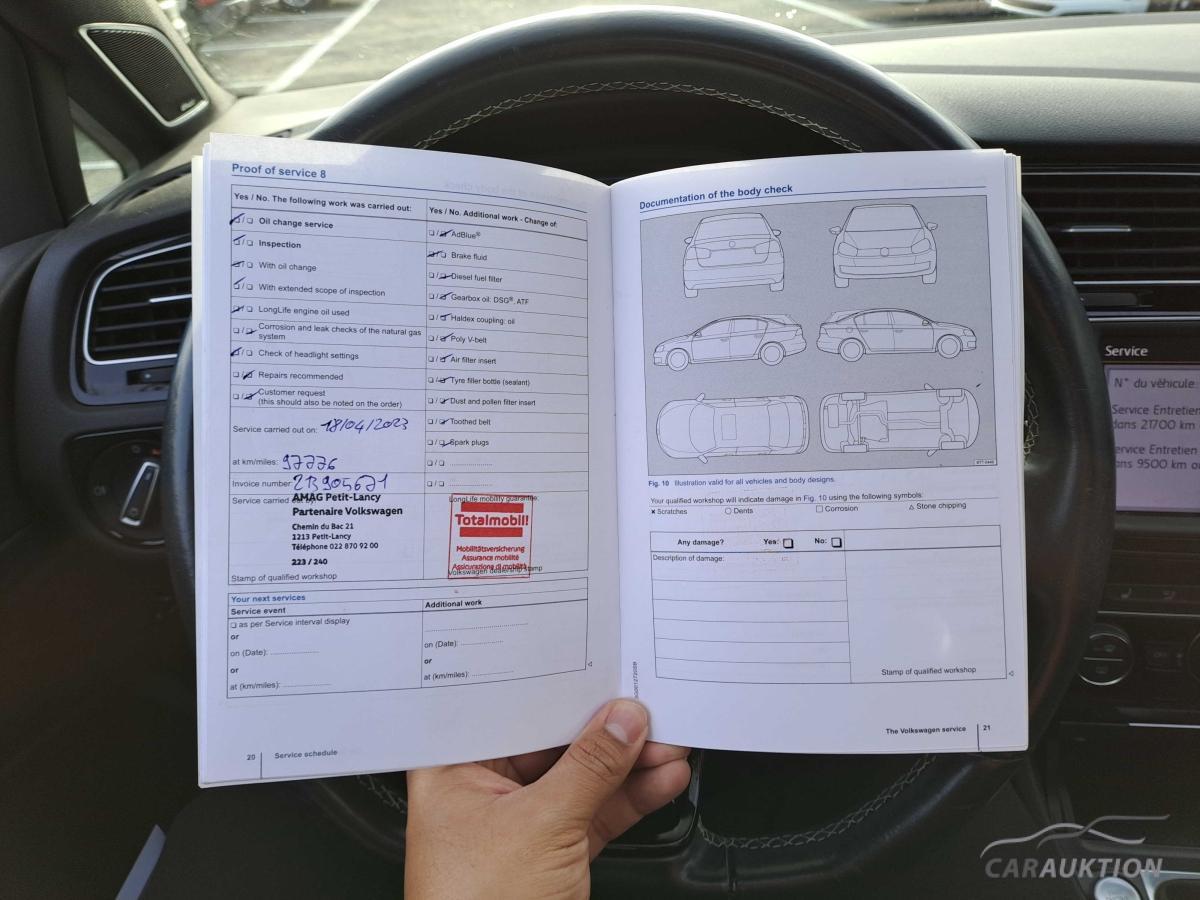 Proof of service 8
Yes / No. The following work was carried out:
Oil change service
Inspection
With oil change
With extended scope of inspection
LongLife engine oil used
Corrosion and leak checks of the natural gas
system
Check of headlight settings
Repairs recommended
Customer request
(this should also be noted on the order)
Service carried out on: 18/04/2023
at km/miles: 97776
Invoice number:
Service carried out by:
AMAG Petit-Lancy
Partenaire Volkswagen
Chemin du Bac 21
1213 Petit-Lancy
Téléphone 022 870 92 00
223 / 240
Stamp of qualified workshop
Yes / No. Additional work - Change of:
AdBlue®
Brake fluid
Diesel fuel filter
Gearbox oil: DSG®, ATF
Haldex coupling: oil
Poly V-belt
Air filter insert
Tyre filler bottle (sealant)
Dust and pollen filter insert
Toothed belt
Spark plugs
LongLife mobility guarantee:
Totalmobil!
Mobilitätsversicherung
Assurance mobilité
Assicurazione di mobilità
Volkswagen dealership stamp
Your next services
Service event
as per Service interval display
or
on (Date): ....................
or
at (km/miles): ....................
Additional work
on (Date): ....................
or
at (km/miles): ....................
20 Service schedule
Documentation of the body check
Fig. 10 Illustration valid for all vehicles and body designs.
Your qualified workshop will indicate damage in Fig. 10 using the following symbols:
× Scratches ○ Dents □ Corrosion △ Stone chipping
Any damage? Yes: No:
Description of damage:
Stamp of qualified workshop
The Volkswagen service 21
Service
N° du véhicule
Service Entretien
dans 21700 km
Service Entretien
dans 9500 km ou
CARAUKTION